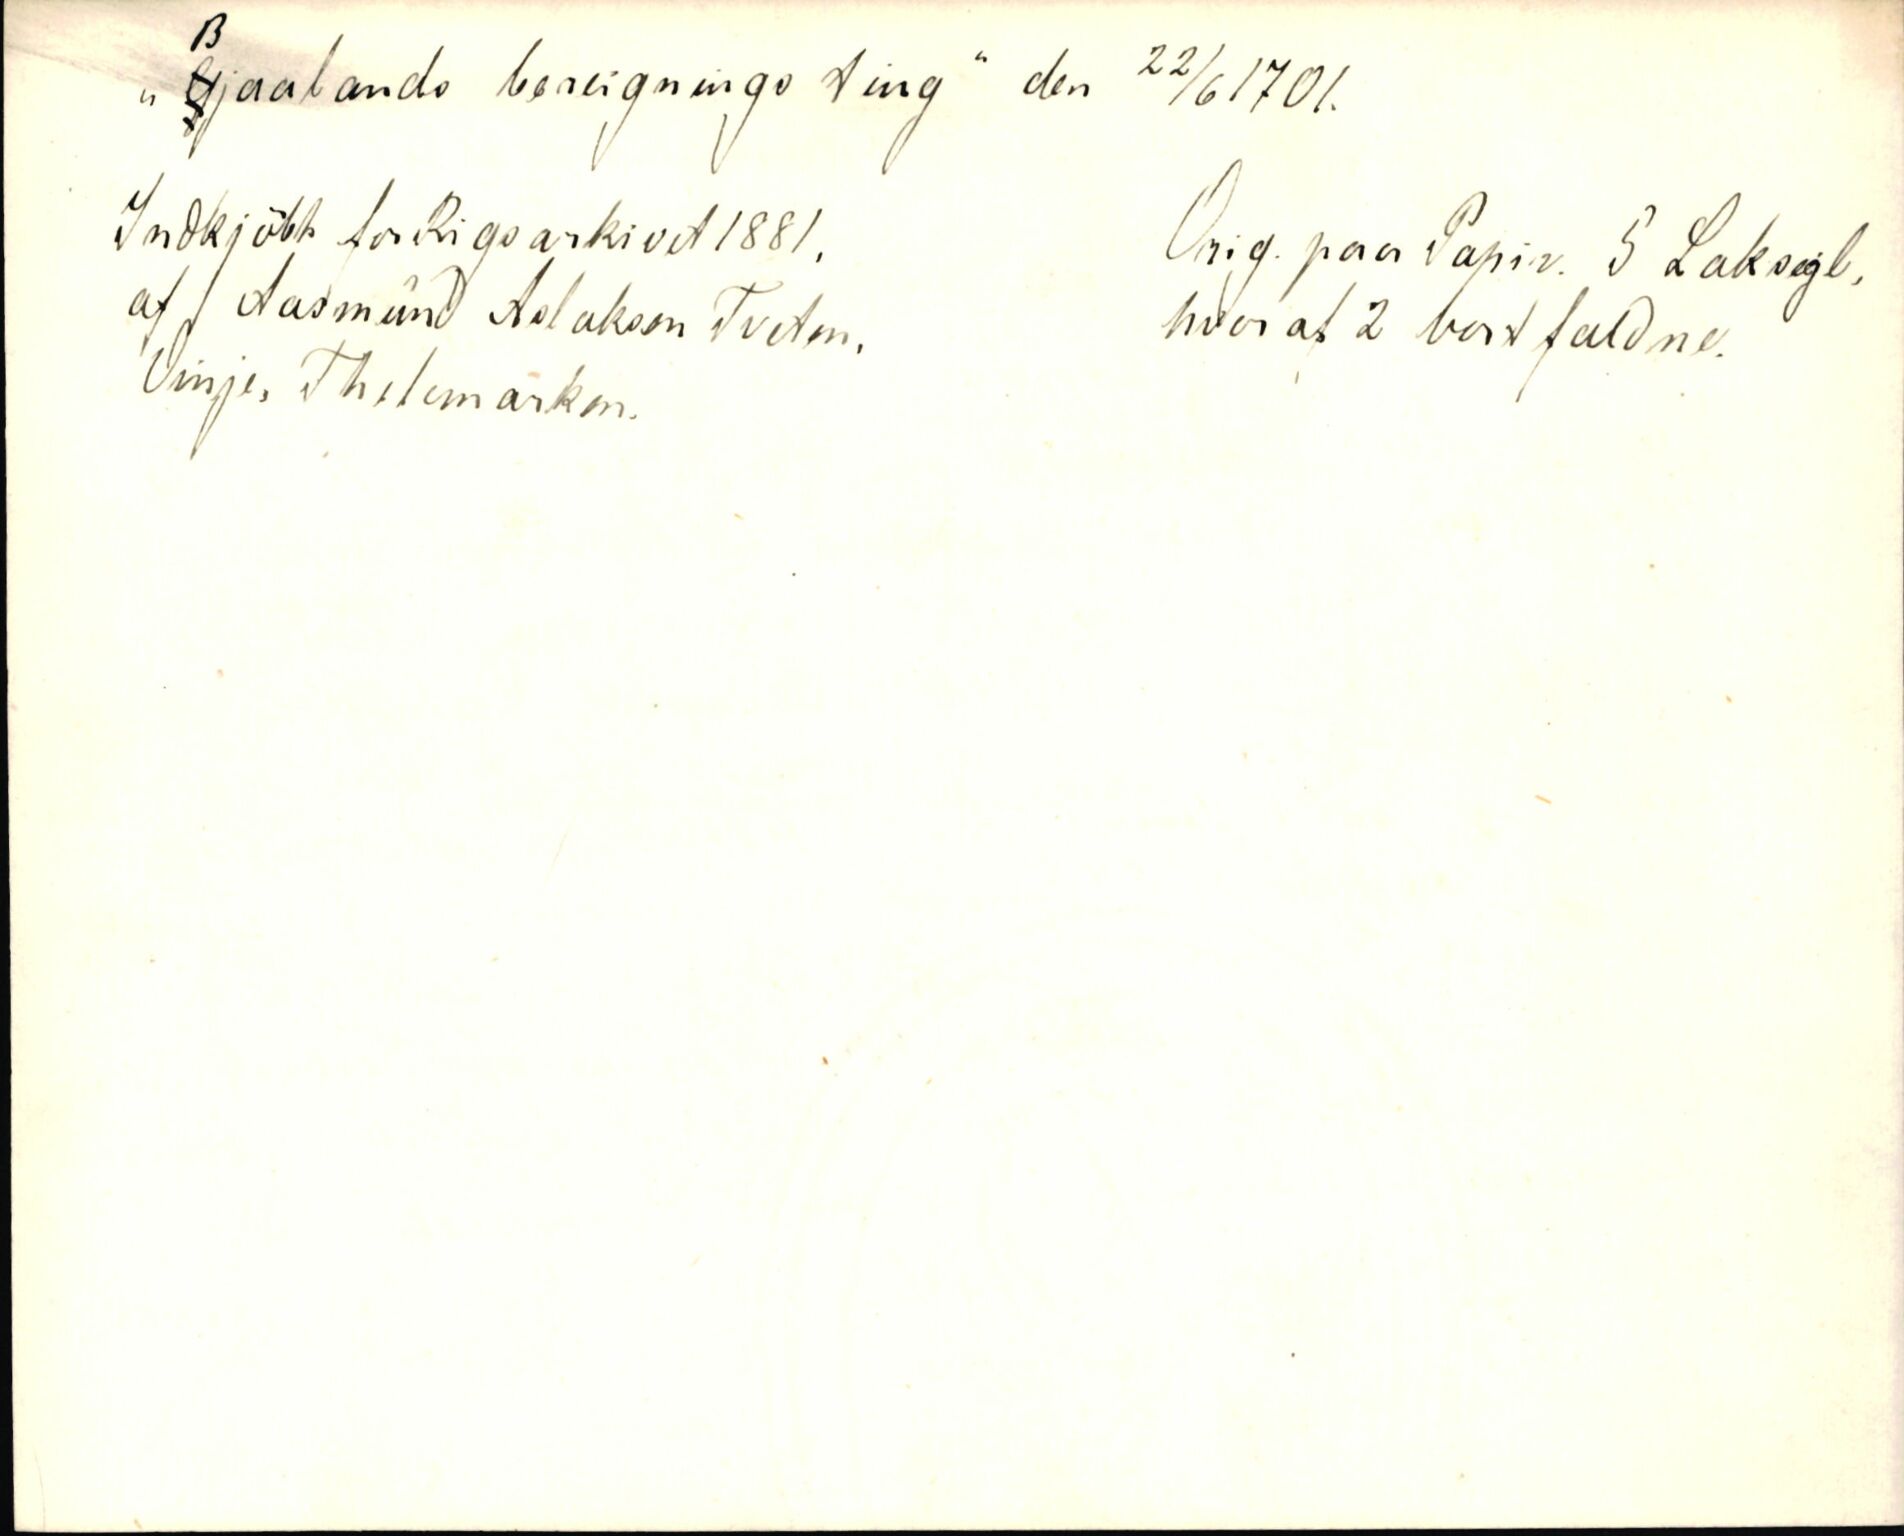 „Bjaalands besignings ting“ den 22/6 1701.
Indkjöbt for Rigsarkivet 1881,
af Aasmund Aslaksen Tveten,
Vinje, Thelemarken.
Orig. paa Papir. 5 Laksegl,
hvoraf 2 bortfaldne.